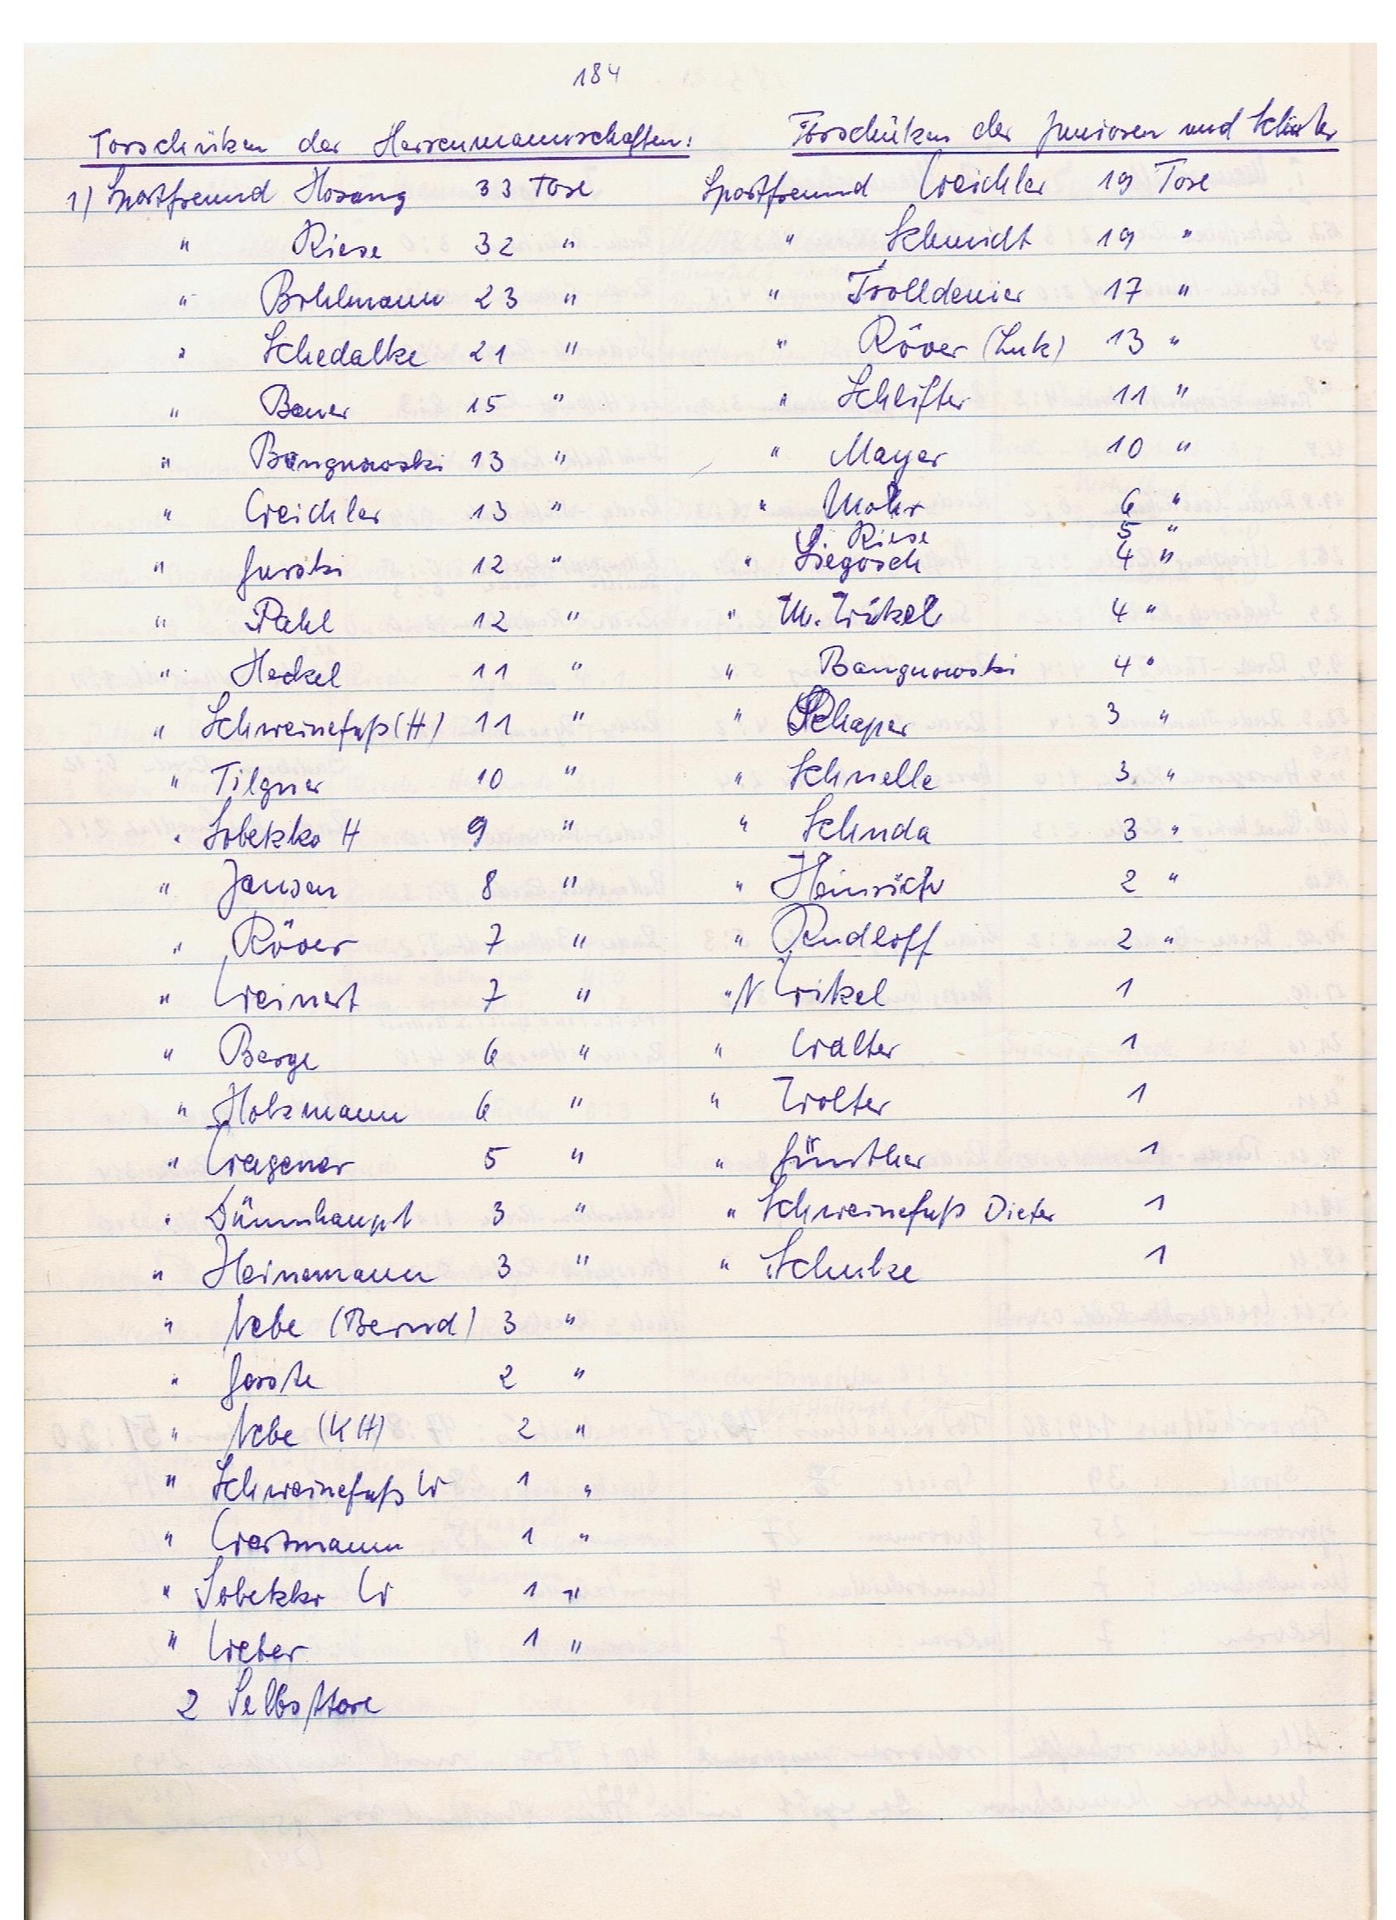 184
Torschützen der Herrenmannschaften:
1) Sportfreund Hosang 33 Tore
" Riese 32 "
" Bohlmann 23 "
" Schedalke 21 "
" Bauer 15 "
" Bangnowski 13 "
" Weichler 13 "
" Jurski 12 "
" Pahl 12 "
" Heckel 11 "
" Schweinefuß (H) 11 "
" Tilgner 10 "
" Sobetzko H 9 "
" Jansen 8 "
" Röver 7 "
" Weinert 7 "
" Barge 6 "
" Holzmann 6 "
" Wagener 5 "
" Dünnhaupt 3 "
" Heinemann 3 "
" Nebe (Bernd) 3 "
" Garote 2 "
" Nebe (KH) 2 "
" Schweinefuß W 1 "
" Wartmann 1 "
" Sobetzko W 1 "
" Weber 1 "
2 Selbsttore
Torschützen der Junioren und Schüler
Sportfreund Weichler 19 Tore
" Schmidt 19 "
" Trolldenier 17 "
" Röver (Luk) 13 "
" Schlifter 11 "
" Mayer 10 "
" Mohr 6 "
Riese 5 "
" Siegosch 4 "
" M. Wikel 4 "
" Bangnowski 4 "
" Schaper 3 "
" Schnelle 3 "
" Schuda 3 "
" Heinrich 2 "
" Rudloff 2 "
" N Wikel 1
" Walter 1
" Wolter 1
" Günther 1
" Schweinefuß Dieter 1
" Schulze 1